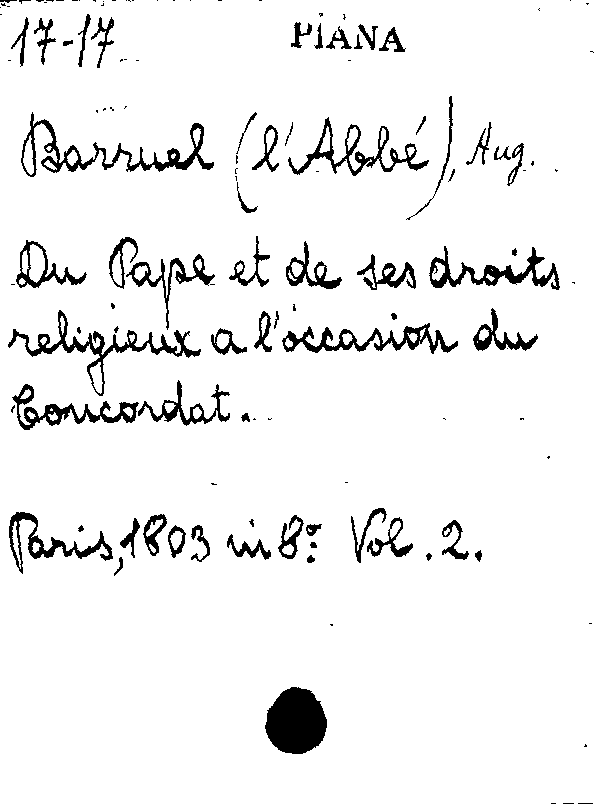 17-17 PIANA
Barruel (l'Abbé), Aug.
Du Pape et de ses droits
religieux a l'occasion du
Concordat.
Paris, 1803 in 8º: Vol. 2.